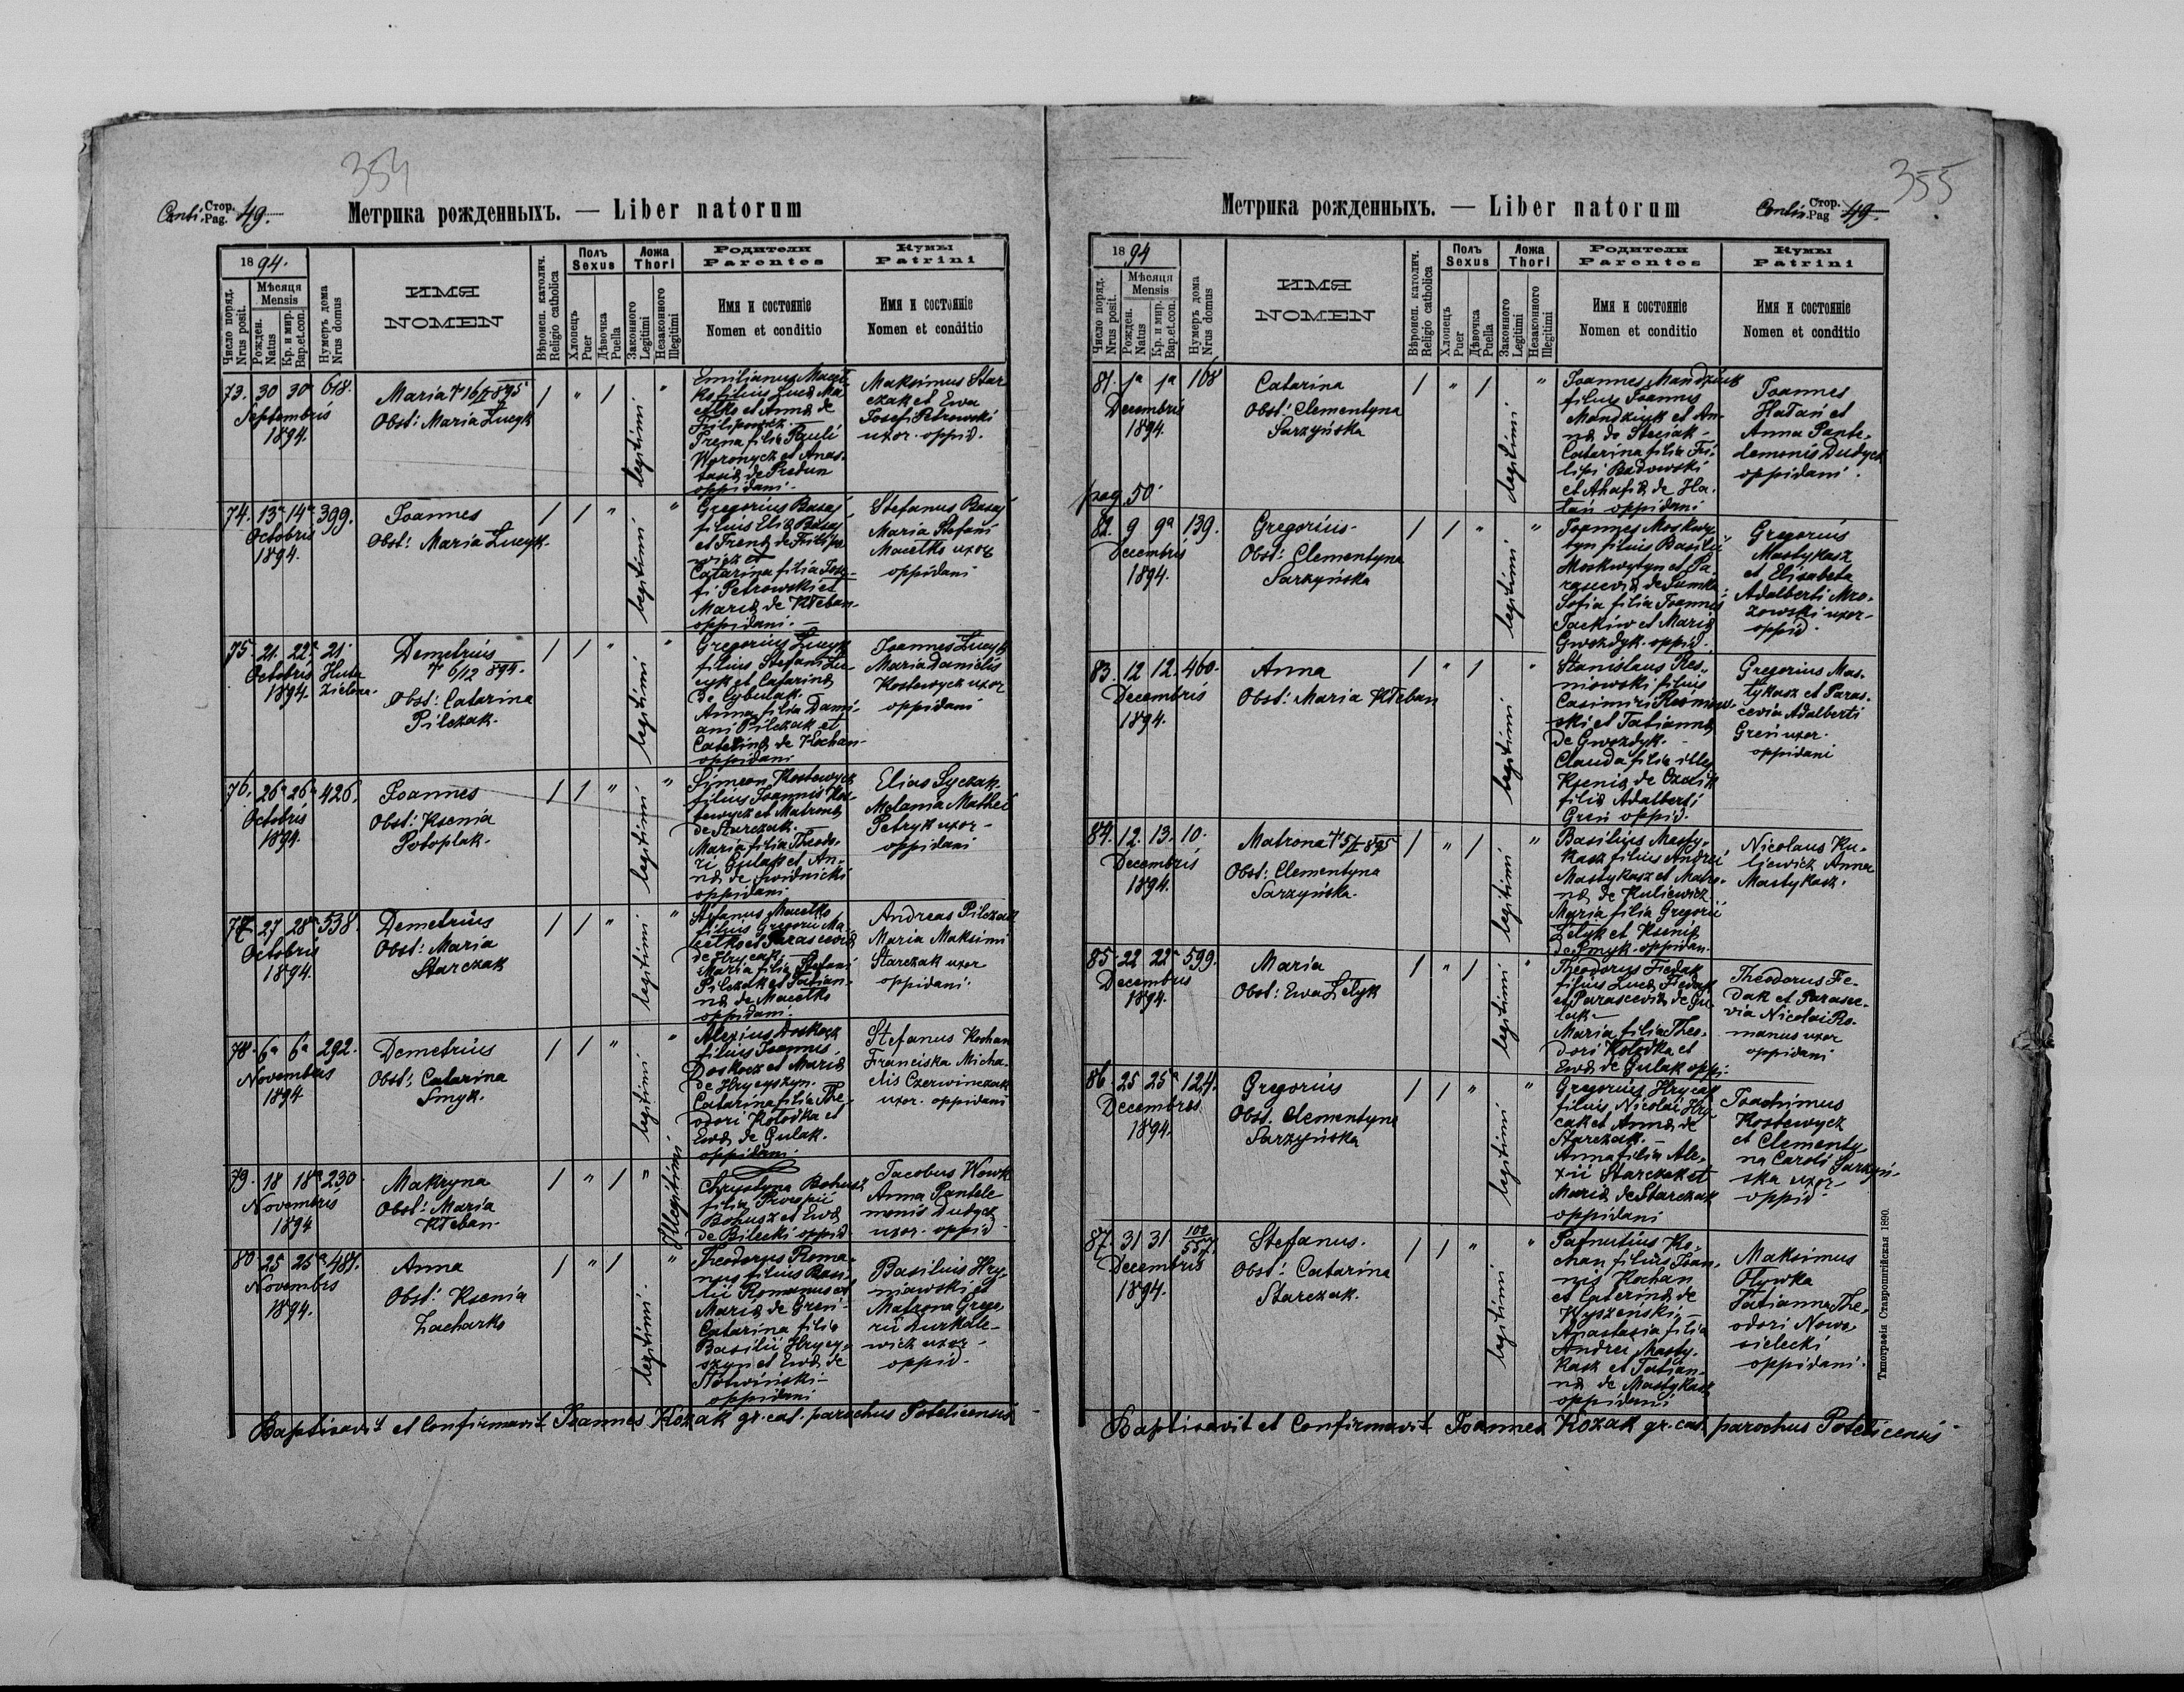 354
Conti. Стор. Pag. 49.
Метрика рожденныхъ. — Liber natorum
1894.
Число поряд. Nrus posit.
Мѣсяця Mensis
Рожден. Natus
Кр. и мир. Bap. et. con.
Нумеръ дома Nrus domus
ИМЯ
NOMEN
Вѣронсп. католич. Religio catholica
Полъ Sexus
Хлопецъ Puer
Дѣвочка Puella
Ложа Thori
Законного Legitimi
Незаконного Illegitimi
Родители Parentes
Имя и состоянiе
Nomen et conditio
Кумы Patrini
Имя и состоянiе
Nomen et conditio
73. 30 30a 618.
Septembris
1894.
Maria
Obst: Maria Łucyk
1 " 1 legitimi "
Emilianus Macet-
ko filius Lucæ Ma
cetko et Annæ de
Filipowicz.
Irena filia Pauli
Woronycz et Anas-
tasiæ de Predun
oppidani.
Maksimus Star
czak et Ewa
Josefi Petrowski
uxor. oppid.
74. 13a 14a 399.
Octobris
1894.
Joannes
Obst: Maria Łucyk.
1 1 " legitimi "
Gregorius Basaj
filius Eliæ Basaj
et Irenæ de Filipo
wicz et
Catarina filia Jose-
fi Petrowski et
Mariæ de Kłeban-
oppidani. —
Stefanus Basaj
Maria Stefani
Macetko uxor
oppidani
75. 21. 22a 21.
Octobris Huta
1894. Zielona.
Demetrius
† 6/12 894.
Obst: Catarina
Pilczak.
1 1 " legitimi "
Gregorius Łucyk
filius Stefani Łu-
cyk et Catarinæ
de Cybulak.
Anna filia Dami-
ani Pilczak et
Caterinæ de Kochan-
oppidani
Joannes Łucyk
Maria Danielis
Kostewycz uxor
oppidani
76. 26a 26a 426.
Octobris
1894.
Joannes
Obst: Ksenia
Potoplak.
1 1 " legitimi "
Simeon Kostewycz
filius Joannis Kos-
tewycz et Matronæ
de Starczak.
Maria filia Theodo-
ri Gulak et An-
næ de Swidnicki
oppidani
Elias Syczak.
Melania Mathei
Petryk uxor-
oppidani
77. 27 28a 538.
Octobris
1894.
Demetrius
Obst: Maria
Starczak
1 1 " legitimi "
Stefanus Macetko
filius Gregorii Ma-
cetko et Parascevæ
de Hrycak.
Maria filia Stefani
Pilczak et Tatian-
næ de Macetko
oppidani.
Andreas Pilczak
Maria Maksimi
Starczak uxor
oppidani.
78. 6a 6a 292.
Novembris
1894
Demetrius
Obst: Catarina
Smyk.
1 1 " legitimi "
Alexius Doskocz
filius Joannis
Doskocz et Mariæ
de Hrycyszyn.
Catarina filia The-
odori Kołodka et
Ewæ de Gulak.
oppidani.
Stefanus Kochan
Franciska Micha-
elis Czerwinczak
uxor. oppidani
79. 18 18a 230
Novembris
1894
Makryna
Obst: Maria
Kłeban-
1 " 1 " Illegitimi
Chrystyna Bohusz
filia Procopii
Bohusz et Ewæ
de Bilecki oppid
Jacobus Wowk
Anna Pantele
monis Dudycz
uxor. oppid
80 25 25a 481.
Novembris
1894.
Anna
Obst: Ksenia
Zacharko
1 " 1 legitimi. "
Theodorus Roma-
nus filius Basi-
lii Romanus et
Mariæ de Greń-
Catarina filia
Basilii Hrycy-
szyn et Ewæ de
Słotwiński-
oppidani
Basilius Hry-
niawski et
Matrona Grego-
rii Zurkale-
wicz uxor-
oppid-
Baptisavit et Confirmavit Joannes Kozak gr. cat. parochus Potelicensis
355
Метрика рожденныхъ. — Liber natorum
Contin. Стор. Pag 49.
1894
Число поряд. Nrus posit.
Мѣсяця Mensis
Рожден. Natus
Кр. и мир. Bap. et. con.
Нумеръ дома Nrus domus
ИМЯ
NOMEN
Вѣронсп. католич. Religio catholica
Полъ Sexus
Хлопецъ Puer
Дѣвочка Puella
Ложа Thori
Законного Legitimi
Незаконного Illegitimi
Родители Parentes
Имя и состоянiе
Nomen et conditio
Кумы Patrini
Имя и состоянiе
Nomen et conditio
81. 1a 1a 108
Decembris
1894.
Catarina
Obst: Clementyna
Sarzyńska
1 " 1 legitimi "
Joannes Mandziuk
filius Joannis
Mandziuk et An-
næ de Steciak-
Catarina filia Fi-
lipi Badowski
et Ahafiæ de Ha-
łań oppidani
Joannes
Hałań et
Anna Pante-
lemonis Dudycz
oppidani.
pag. 50
82. 9 9a 139.
Decembris
1894.
Gregorius-
Obst: Clementyna
Sarzyńska
1 1 " legitimi "
Joannes Moskwy-
tyn filius Basilii
Moskwytyn et Pa-
rascevæ de Sumka.
Sofia filia Joannis
Jackiw et Mariæ
Gwozdyk. oppid.
Gregorius
Mastykasz
et Elisabeta
Adalberti Mro-
zowski uxor-
oppid.
83. 12 12. 460.
Decembris
1894.
Anna
Obst: Maria Kłeban
1 " 1 legitimi "
Stanislaus Res-
niowski filius
Casimiri Resniow-
ski et Tatiannæ
de Gwozdyk.-
Clauda filia illeg
Kseniæ de Czolik
filiæ Adalberti
Greń oppid.
Gregorius Mas-
tykasz et Paras-
cevia Adalberti
Greń uxor.
oppidani
84. 12. 13. 10.
Decembris
1894.
Matrona
Obst: Clementyna
Sarzyńska.
1 " 1 legitimi "
Basilius Masty-
kasz filius Andrei
Mastykasz et Matro-
næ de Kuliewicz
Maria filia Gregorii
Łełyk et Kseniæ
de Smyk. oppidan.
Nicolaus Ku-
liewicz Anna
Mastykasz.
85. 22 22a 599.
Decembris
1894.
Maria
Obst: Ewa Łełyk
1 " 1 legitimi "
Theodorus Fiedak
filius Lucæ Fiedak
et Parasceviæ de Gu-
lak-
Maria filia Theo-
dori Kołodka et
Ewæ de Gulak oppi:
Theodorus Fe-
dak et Parasce-
via Nicolai Ro-
manus uxor
oppidani
86. 25 25a 124.
Decembris
1894.
Gregorius
Obst. Clementyna
Sarzyńska
1 1 " legitimi "
Gregorius Hrycak
filius Nicolai Hry-
cak et Annæ de
Starczak.-
Anna filia Ale-
xii Starczak et
Mariæ de Starczak
oppidani
Joachimus
Kostewycz
et Clementy-
na Caroli Sarzyń-
ska uxor-
oppid.
87. 31 31. 557.
Decembris
1894.
Stefanus.
Obst: Catarina
Starczak.
1 1 " legitimi "
Pafnutius Ko-
chan filius Joan-
nis Kochan
et Caterinæ de
Wyszeński,-
Anastasia filia
Andrei Masty-
kasz et Tatian-
næ de Mastykasz
oppidani
Maksimus
Oływka
Tatianna The-
odori Nowo-
sielecki
oppidani.
Baptisavit et Confirmavit Joannes Kozak gr. cat. parochus Potelicensis
Типографія Ставропигійская 1890.